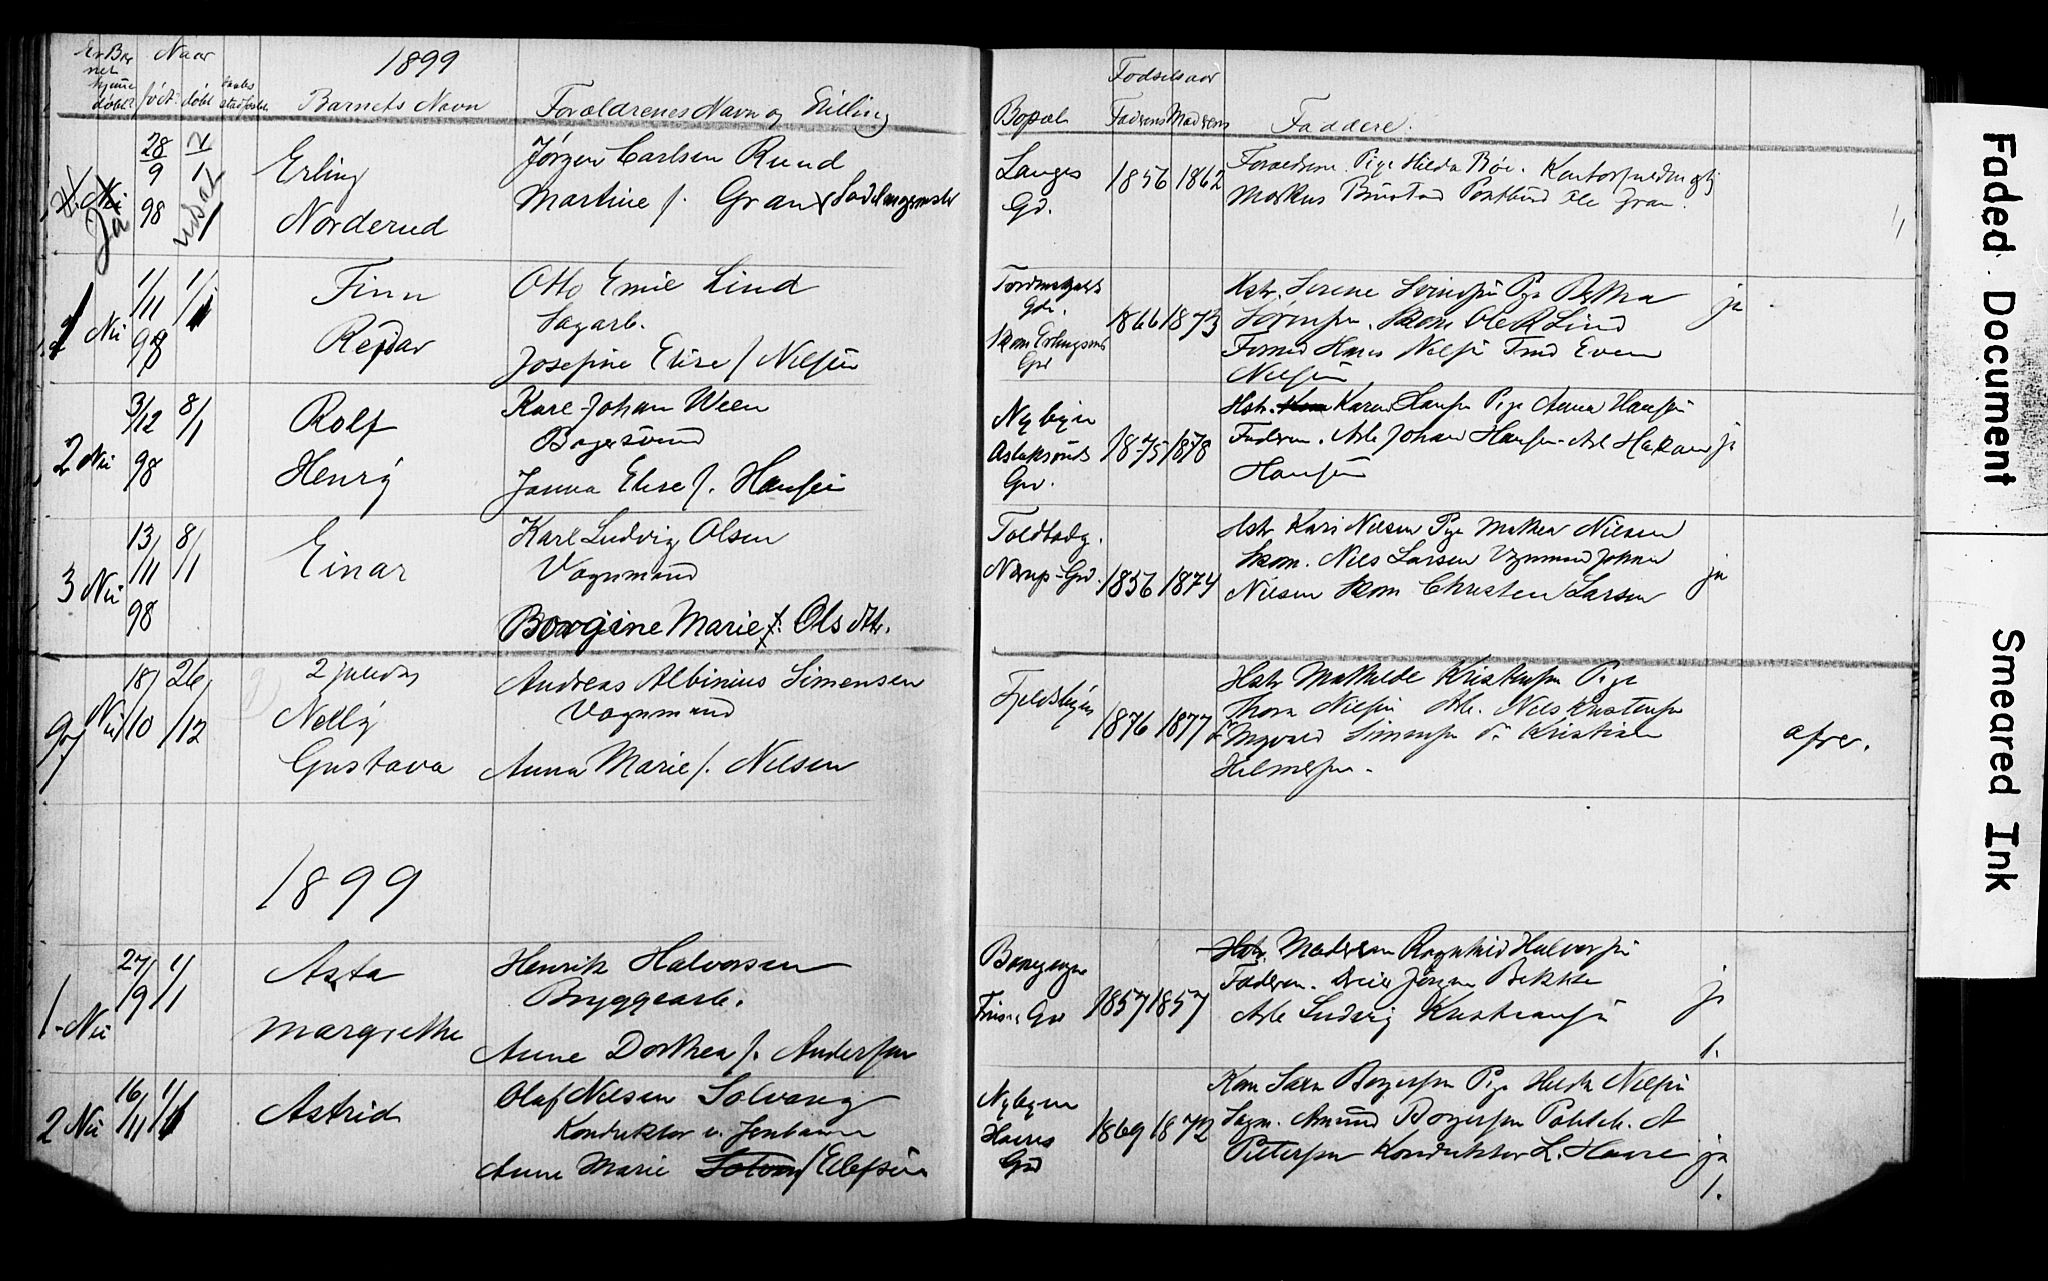 1899
Er Bar Naar
net
hjemme
døbt? født? døbt
Barnets Navn Forældrenes Navn og Stilling
Fødselsaar
Bopæl Faderens Moderens Faddere.
28 2
9 1
98
Ja
Erling
Norderud
Jørgen Carlsen Ruud
Martine f. Gran
Langes
Gd.
1856 1862
Forældrene. Pige Hilda Bøe. Kontorfuldmægtig
Markus Postbud Ole Gran.
Nei
1/11 1/1
98
Finn
Reidar
Otto Emil Lind
Sagarb.
Josefine Elise f. Nilsen
Gd.
1866 1873
Hstr. Serene Pige
Sørensen. Ole Lind
Hans Nilsen Even
Nilsen
ja
2 Nei
3/12 8/1
98
Rolf
Henry
Karl Johan Ween
Jenna Elise f. Hansen
Nybyen
Gd.
1875 1878
Hstr. Karen Hansen Pige Anna Hansen
Faderen. Arb Johan Hansen. Arb Hakan
Hansen
ja
3 Nei
13/11 8/1
98
Einar
Karl Ludvig Olsen
Vognmand
Borgine Marie f. Olsdtr.
Toldbodg.
Gd.
1856 1874
Hstr Kari Nilsen Pige Mathea Nilsen
Skom. Nils Larsen Vognmand Johan
Nilsen Skom Christen Larsen
ja
97
Nei
18/10 26/12
2 juledag
Nelly
Gustava
Andreas Albinius Simensen
Vognmand
Anna Marie f. Nilsen
Fjeldbyen
1876 1877
Hstr Mathilde Kristensen Pige
Thora Nilsen Arb. Nils Kristensen
Ingvald Simensen Kristian
Hilmersen.
1899
1 Nei
27/9 1/1
Asta
Margrethe
Henrik Halvorsen
Bryggearb.
Anne Dorthea f. Andersen
Gd
1857 1857
Hstr. Moderen Ragnhild Halvorsen
Faderen. Jørgen
Arb Ludvig Kristiansen
ja
1.
2 Nei
16/11 1/1
Astrid
Olaf Nilsen Solvang
Konduktør v. Jernbanen
Anne Marie Solvang f Ellefsen
Nybyen
Gd
1869 1872
Kone Sara Borgersen Pige Hilda Nilsen
Sagm. Amund Borgersen A
Pettersen Konduktør L. Haare
ja
1.
Faded Document
Smeared Ink